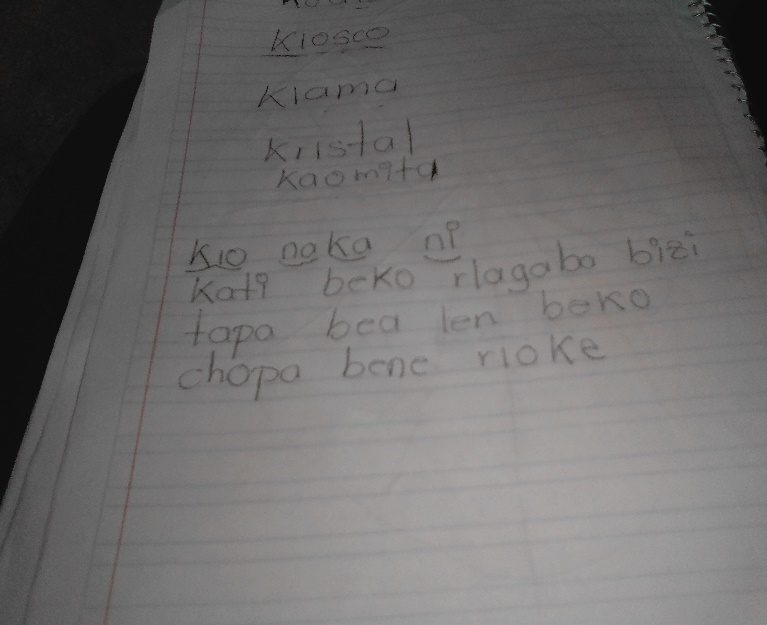 Kiosco
Kiama
Kristal
Kaomita
Kio naka ni
Kati beko rlagabo bizi
tapa bea len beko
chopa bene rioke